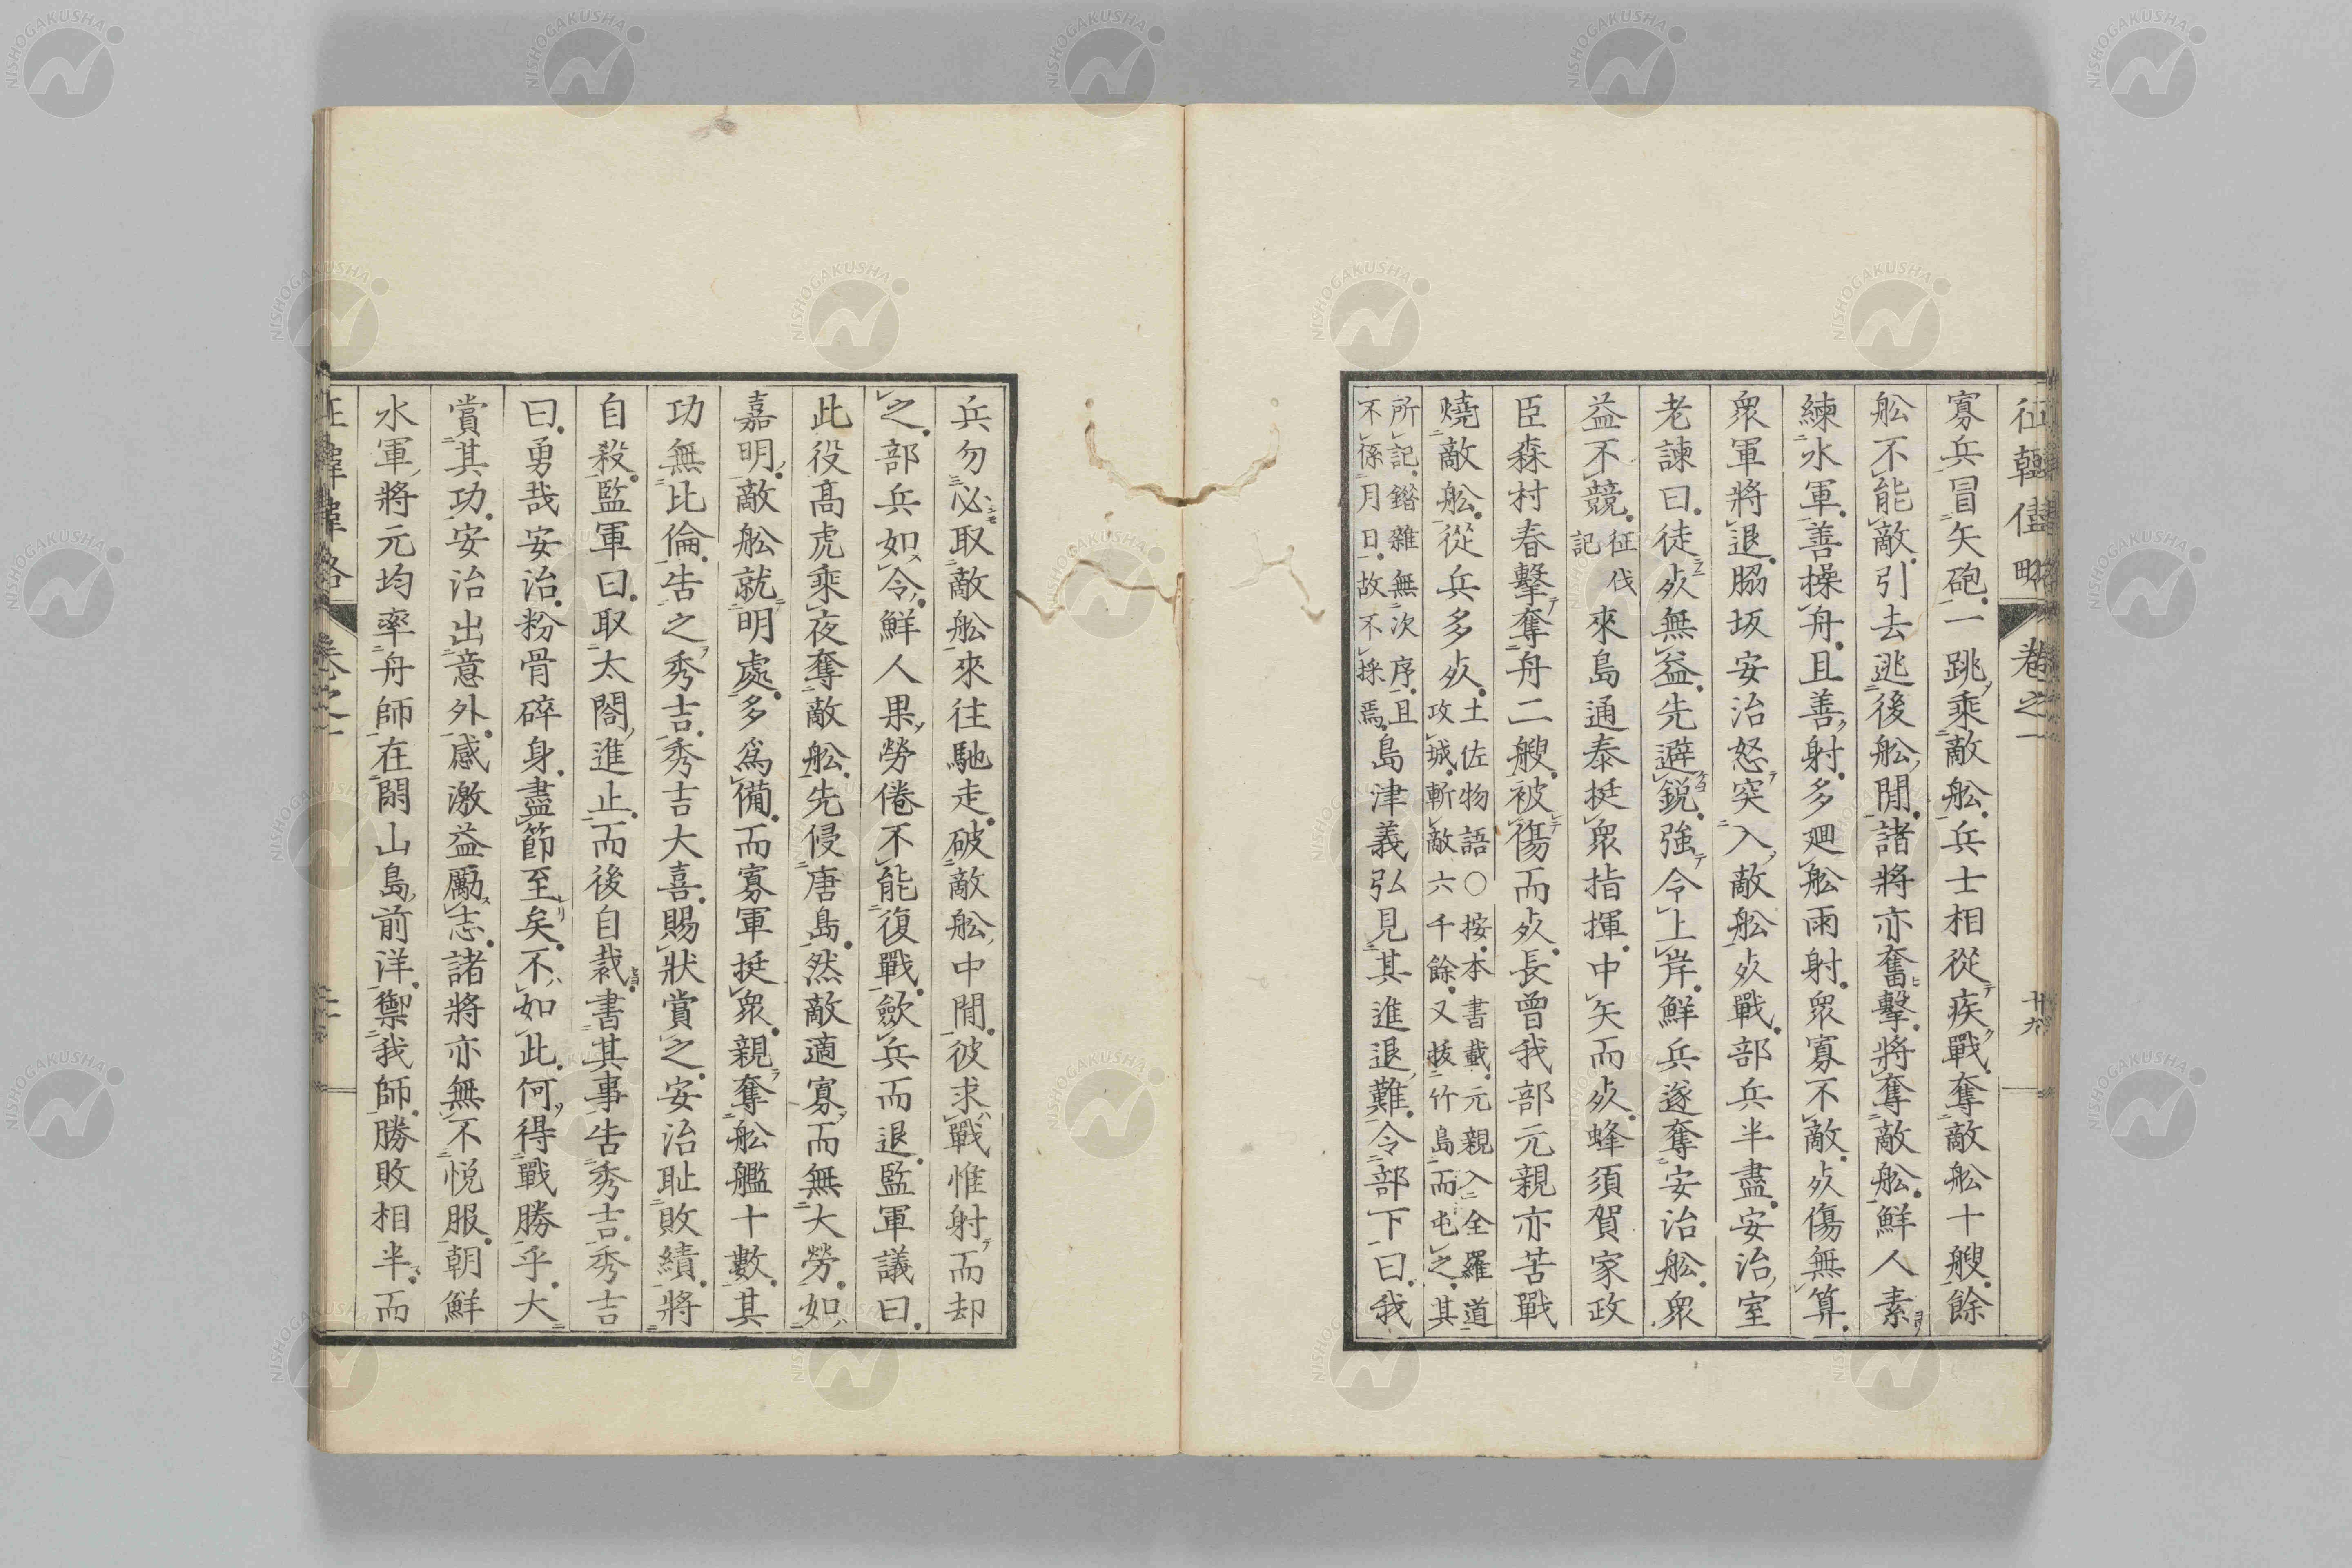 征韓偉略 卷之一 十九
寡兵冒矢砲一跳乘敵舩兵士相從疾戰奪敵舩十艘餘
舩不能敵引去逃後舩間諸將亦奮擊將奪敵舩鮮人素
練水軍善操舟且善射多廻舩雨射衆寡不敵死傷無算
衆軍將退脇坂安治怒突入敵舩死戰部兵半盡安治室
老諫曰徒死無益先避鋭強令上岸鮮兵遂奪安治舩衆
益不競征伐記來島通泰挺衆指揮中矢而死蜂須賀家政
臣森村春擊奪舟二艘被傷而死長曾我部元親亦苦戰
燒敵舩從兵多死土佐物語○按本書載元親入全羅道
攻城斬敵六千餘又拔竹島而屯之其
所記錯雜無次序且
不係月日故不採焉島津義弘見其進退難令部下曰我
兵勿必取敵舩來往馳走破敵舩中間彼求戰惟射而却
之部兵如令鮮人果勞倦不能復戰歛兵而退監軍議曰
此役高虎乘夜奪敵舩先侵唐島然敵適寡而無大勞如
嘉明敵舩就明處多爲備而寡軍挺衆親奪舩艦十數其
功無比倫告之秀吉秀吉大喜賜狀賞之安治耻敗績將
自殺監軍曰取太閤進止而後自裁書其事告秀吉秀吉
曰勇哉安治粉骨碎身盡節至矣不如此何得戰勝乎大
賞其功安治出意外感激益勵志諸將亦無不悦服朝鮮
水軍將元均率舟師在閑山島前洋禦我師勝敗相半而
NISHOGAKUSHA